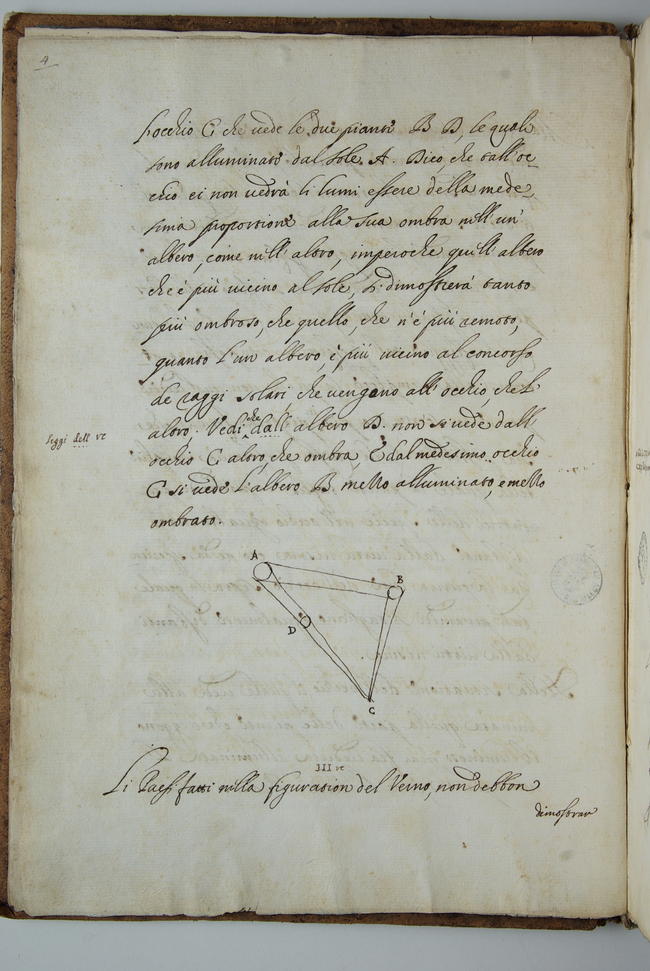 4
L'occhio C che vede le due piante B D, le quali
sono alluminate dal sole A. Dico, che tall'oc-
chio ei non vedrà li lumi essere della mede-
sima proportione alla sua ombra nell'un'
albero, come nell'altro, imperoche quell'albero
che è più vicino al sole, si dimostrerà tanto
più ombroso, che quello, che n'è più remoto,
quanto l'un albero, è più vicino al concorso
de raggi solari, che vengano all'occhio, che l'
altro. Vedi che dall'albero D. non si vede dall'
leggi dell
occhio C altro che ombra, E dal medesimo occhio
C si vede l'albero B mezzo alluminato, e mezzo
ombrato.
A
B
D
C
III
Li Paesi fatti nella figuration del Verno, non debbon
dimostrar